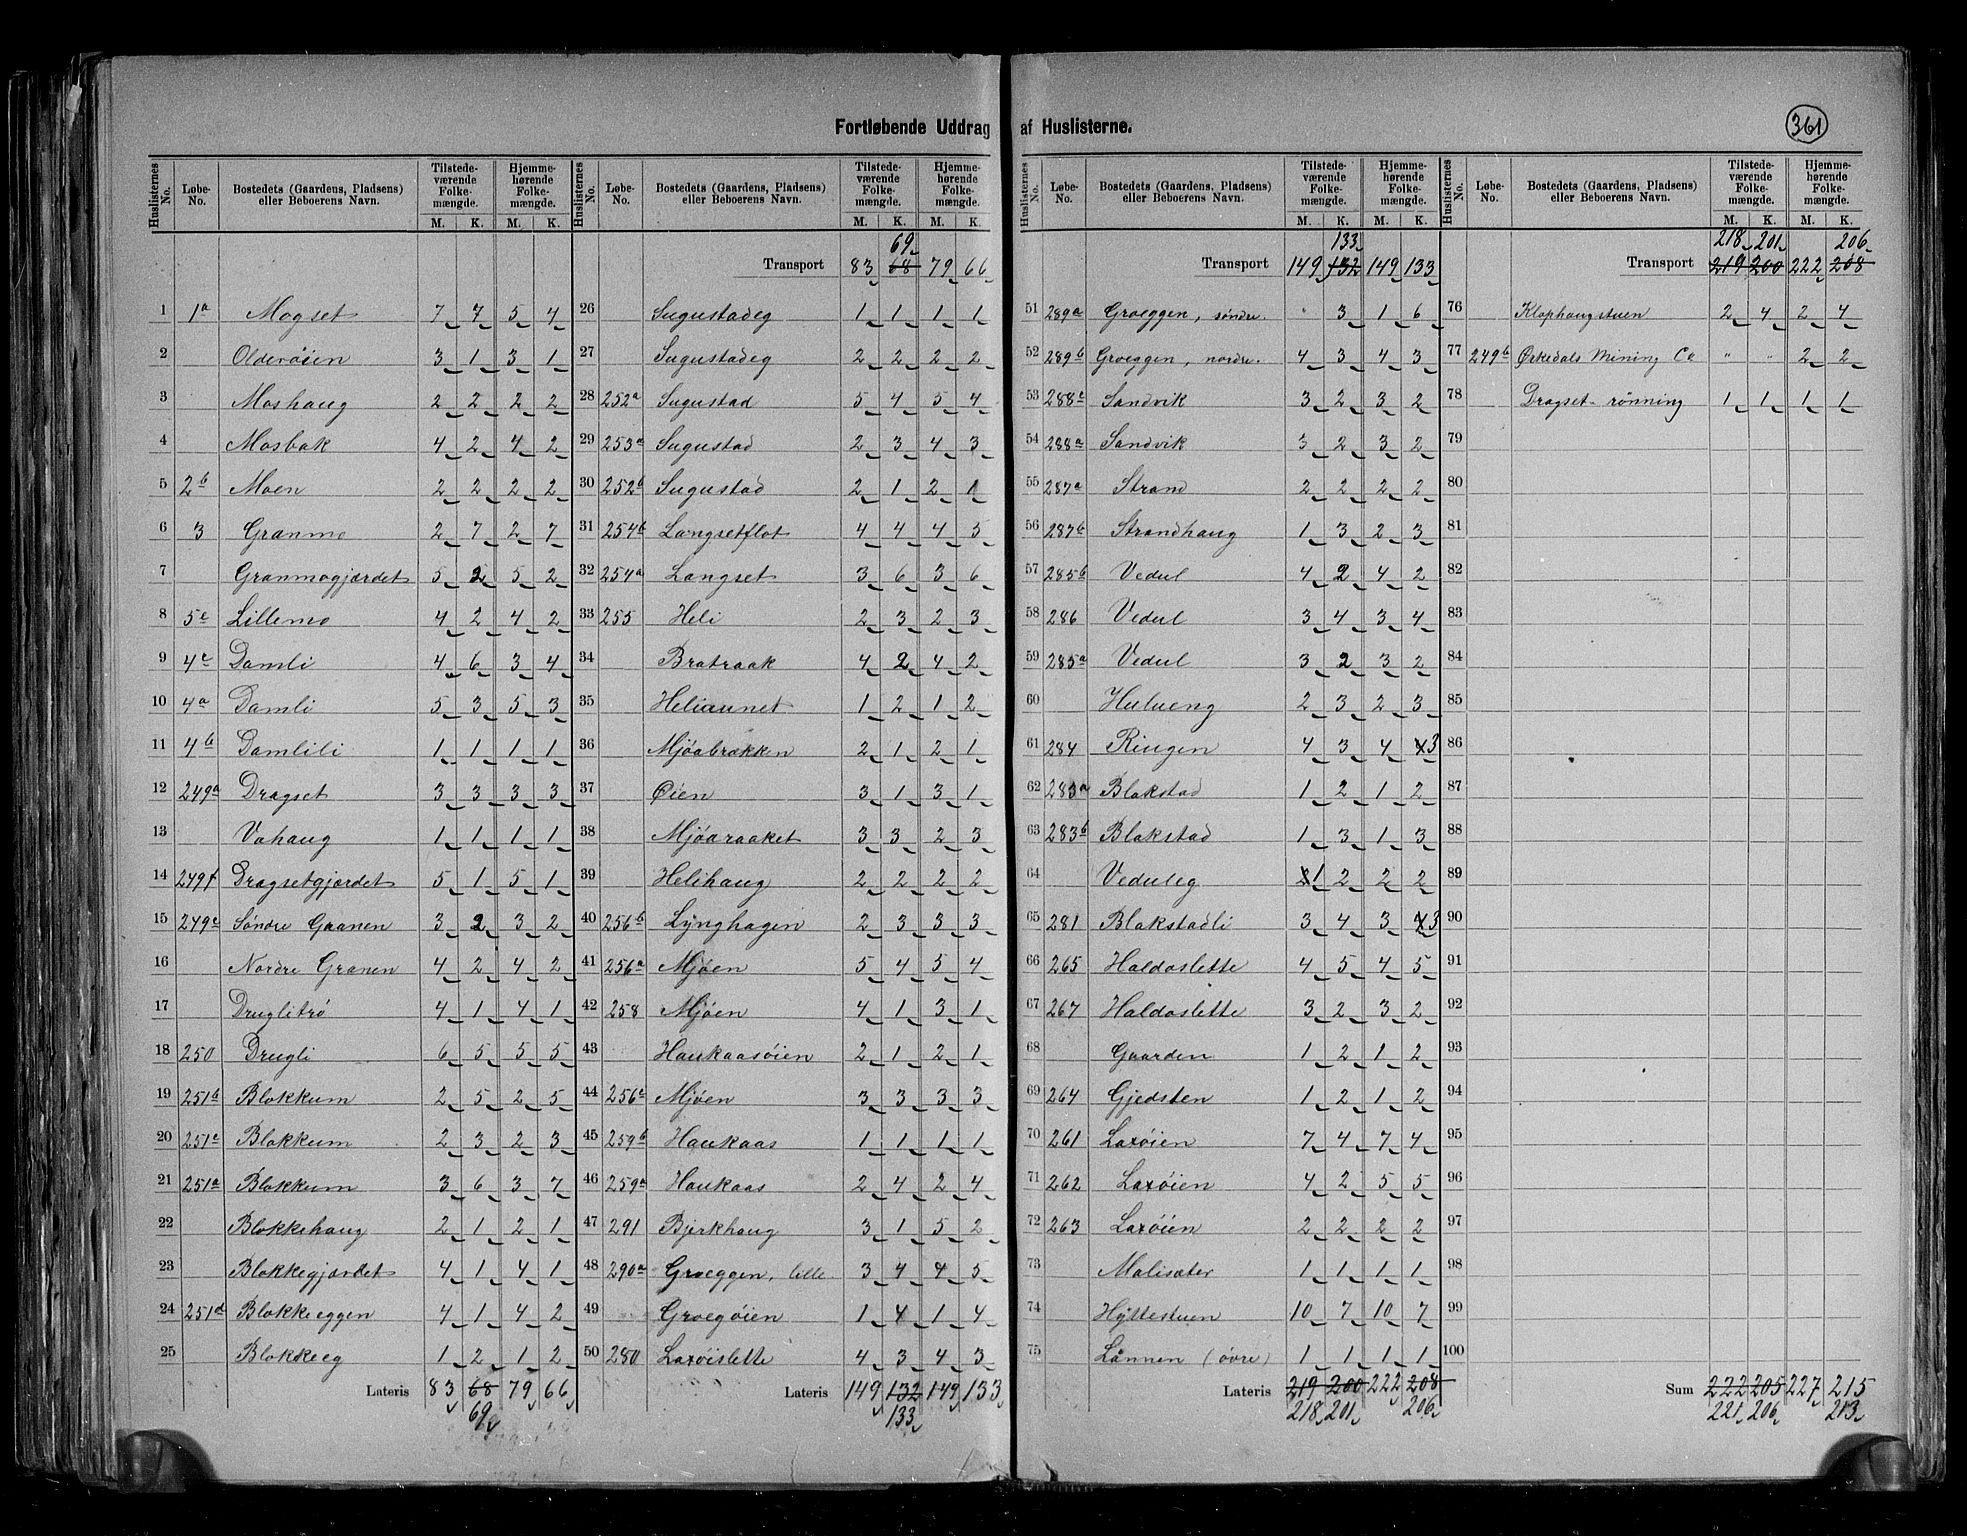 Fortløbende Uddrag af Huslisterne.
361
Huslisternes No. | Løbe-No. | Bostedets (Gaardens, Pladsens) eller Beboerens Navn. | Tilstedeværende Folkemængde. M. K. | Hjemmehørende Folkemængde. M. K.
1 1a Mogset 7 7 5 4
2 Olderöien 3 1 3 1
3 Moshaug 2 2 2 2
4 Mosbak 4 2 4 2
5 2b Moen 2 2 2 2
6 3 Granmo 2 7 2 7
7 Granmogjærdet 5 2 5 2
8 5c Lillemo 4 2 4 2
9 4c Damli 4 6 3 4
10 4a Damli 5 3 5 3
11 4b Damlili 1 1 1 1
12 249a Dragset 3 3 3 3
13 Vahaug 1 1 1 1
14 249f Dragsetgjærdet 5 1 5 1
15 249c Söndre Granen 3 2 3 2
16 Nordre Granen 4 2 4 2
17 Druglitrö 4 1 4 1
18 250 Drugli 6 5 5 5
19 251b Blokkum 2 5 2 5
20 251c Blokkum 2 3 2 3
21 251a Blokkum 3 6 3 7
22 Blokkehaug 2 1 2 1
23 Blokkegjærdet 4 1 4 1
24 251d Blokkeeggen 4 1 4 2
25 Blokkeeg 1 2 1 2
Lateris 83 68 79 66
69
Huslisternes No. | Løbe-No. | Bostedets (Gaardens, Pladsens) eller Beboerens Navn. | Tilstedeværende Folkemængde. M. K. | Hjemmehørende Folkemængde. M. K.
69
Transport 83 68 79 66
26 Sugustadeg 1 1 1 1
27 Sugustadeg 2 2 2 2
28 252a Sugustad 5 4 5 4
29 253a Sugustad 2 3 4 3
30 252b Sugustad 2 1 2 1
31 254b Langsetflot 4 4 4 5
32 254a Langset 3 6 3 6
33 255 Heli 2 3 2 3
34 Bratraak 4 2 4 2
35 Heliaunet 1 2 1 2
36 Mjöabrækken 2 1 2 1
37 Öien 3 1 3 1
38 Mjöaraaket 3 3 2 3
39 Helihaug 2 2 2 2
40 256b Lynghagen 2 3 3 3
41 256a Mjöen 5 4 5 4
42 258 Mjöen 4 1 3 1
43 Haukaasöien 2 1 2 1
44 256c Mjöen 3 3 3 3
45 259b Haukaas 1 1 1 1
46 259a Haukaas 2 4 2 4
47 291 Bjerkhaug 3 1 5 2
48 290a Groeggen, lille 3 4 4 5
49 Groegöien 1 4 1 4
50 280 Laxöislette 4 3 4 3
Lateris 149 132 149 133
133
Huslisternes No. | Løbe-No. | Bostedets (Gaardens, Pladsens) eller Beboerens Navn. | Tilstedeværende Folkemængde. M. K. | Hjemmehørende Folkemængde. M. K.
133
Transport 149 132 149 133
51 289a Groeggen, söndre. " 3 1 6
52 289b Groeggen, nordre. 4 3 4 3
53 288c Sandvik 3 2 3 2
54 288a Sandvik 3 2 3 2
55 287a Strand 2 2 2 2
56 287b Strandhaug 1 3 2 3
57 285b Vedul 4 2 4 2
58 286 Vedul 3 4 3 4
59 285a Vedul 3 2 3 2
60 Hulueng 2 3 2 3
61 284 Ringen 4 3 4 3
62 283a Blokstad 1 2 1 2
63 283b Blokstad 1 3 1 3
64 Veduleg 1 2 2 2
65 281 Blokstadli 3 4 3 3
66 265 Haldoslette 4 5 4 5
67 267 Haldoslette 3 2 3 2
68 Gaarden 1 2 1 2
69 264 Gjedsten 1 2 1 2
70 261 Laxöien 7 4 7 4
71 262 Laxöien 4 2 5 5
72 263 Laxöien 2 2 2 2
73 Molisæter 1 1 1 1
74 Hyttestuen 10 7 10 7
75 Lännen (övre) 1 1 1 1
Lateris 219 200 222 208
218 201 206
Huslisternes No. | Løbe-No. | Bostedets (Gaardens, Pladsens) eller Beboerens Navn. | Tilstedeværende Folkemængde. M. K. | Hjemmehørende Folkemængde. M. K.
218 201 206
Transport 219 200 222 208
76 Klophaugstuen 2 4 2 4
77 249b Ørkedals Mining Co " " 2 2
78 Dragset-rönning 1 1 1 1
79
80
81
82
83
84
85
86
87
88
89
90
91
92
93
94
95
96
97
98
99
100
Sum 222 205 227 215
221 206 213